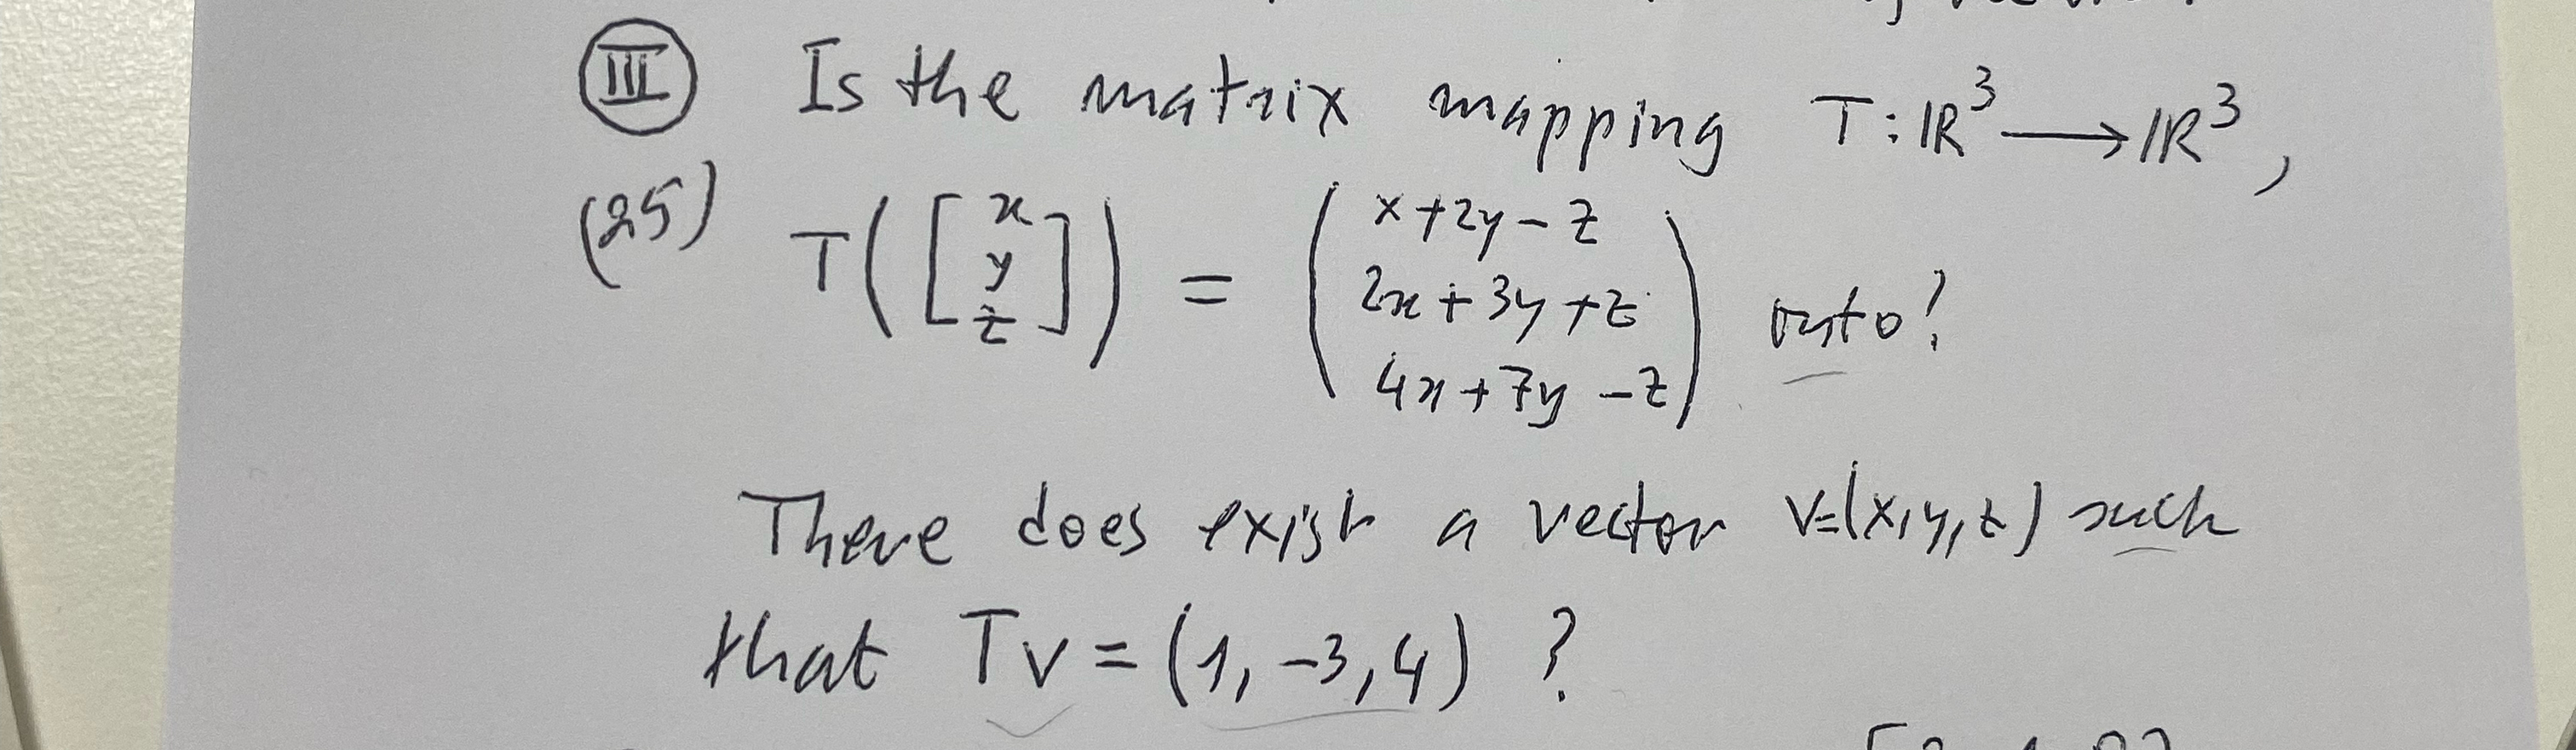 III Is the matrix mapping T : ℝ³ ⟶ ℝ³,
(25) T([x y z]) = (x+2y-z
2x+3y+z
4x+7y-z) onto?
There does exist a vector v=(x,y,z) such
that Tv = (1,-3,4) ?